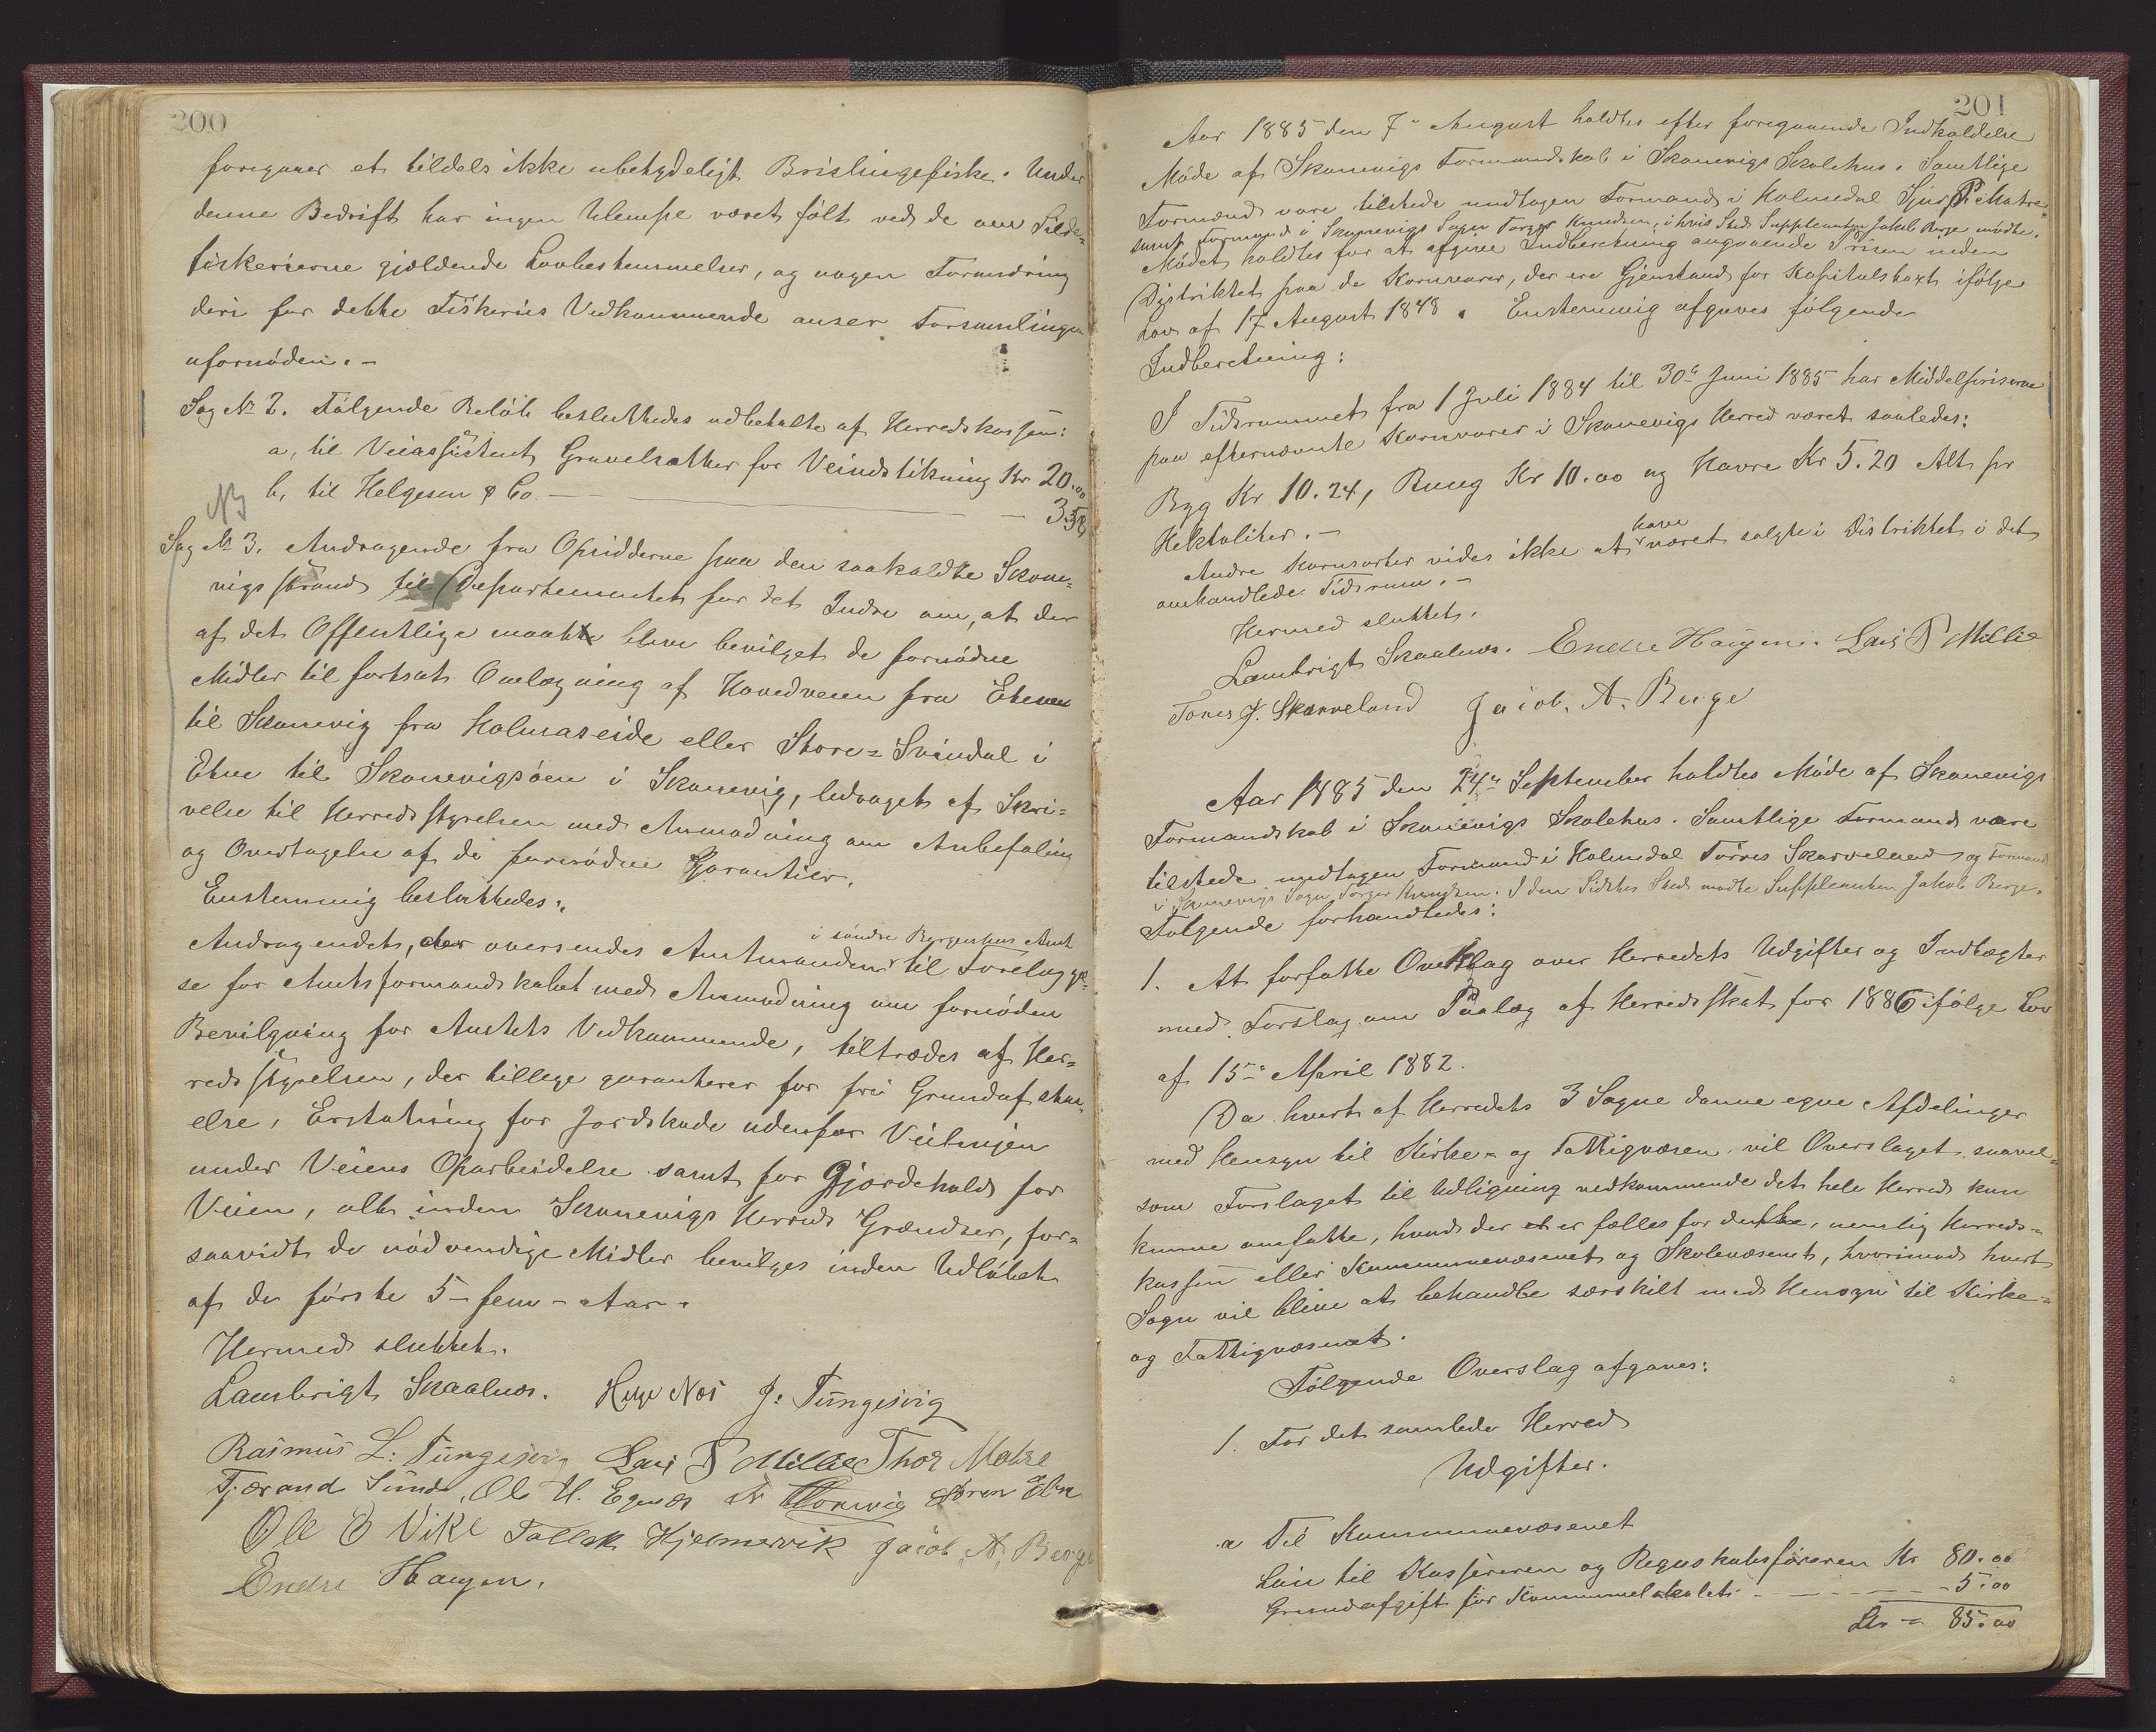 200
foregaaer et tildels ikke ubetydeligt Brislingefiske. Under
denne Bedrift har ingen Ulempe været følt ved de om Silde-
fiskerierne gjældende Lovbestemmelser, og nogen Forandring
deri for dette Fiskeries Vedkommende anser Forsamlingen
ufornøden. –
Sag No 2. Følgende Beløb besluttedes udbetalte af Herredskassen:
a, til Veiassistent Gravelsæther for Veiudstikning Kr 20.00
NB
b, til Helgesen & Co. – – 3.58
Sag No 3. Andragende fra Opsidderne paa den saakaldte Skone-
vigsstrand til Departementet for det Indre om, at der
af det Offentlige maatte blive bevilget de fornødne
Midler til fortsat Omlægning af Hovedveien fra Etne
til Skonevig fra Holmaseide eller Store-Svindal i
Etne til Skonevigsøen i Skonevig, ledsaget af Skri-
velse til Herredsstyrelsen med Anmodning om Anbefaling
og Overtagelse af de fornødne Garantier.
Enstemmig besluttedes:
i søndre Bergenhus Amt
Andragendet, der oversendes Amtmanden til Forelæggel-
se for Amtsformandskabet med Anmodning om fornøden
Bevilgning for Amtets Vedkommende, tiltrædes af Her-
redsstyrelsen, der tillige garanterer for fri Grundafstaa-
else, Erstatning for Jordskade udenfor Veilinjen
under Veiens Oparbeidelse samt for Gjordehold for
Veien, alt inden Skonevigs Herreds Grændser, for-
saavidt de nødvendige Midler bevilges inden Udløbet
af de første 5 – fem – Aar.
Hermed sluttet.
Lambrigt Skaalnes. Helge Næs J. Tungesvig
Rasmus L: Tungesvig Lars P Millie Thor Matre
Tjerand Sunde, Ole H. Egenes Søren Etne
Ole O Vike Tollak Hjelmervik Jacob. A. Berge
Endre Haugen.
201
Aar 1885 den 7de August holdtes efter foregaaende Indkaldelse
Møde af Skonevigs Formandskab i Skonevigs Skolehus. Samtlige
Formænd vare tilstede undtagen Formand i Holmedal Sjur P. Matre
samt Formand i Skonevigs Sogn Torger Knudsen, i hvis Sted Suppleanten Jakob Berge mødte.
Mødet holdtes for at afgive Indberetning angaaende Prisen inden
Distriktet paa de Kornvarer, der ere Gjenstand for Kapitelstaxt ifølge
Lov af 17 August 1848. Enstemmig afgaves følgende
Indberetning:
I Tidsrummet fra 1 Juli 1884 til 30te Juni 1885 har Middelpriserne
paa efternævnte Kornvarer i Skonevigs Herred været saaledes:
Byg Kr 10.24, Rug Kr 10.00 og Havre Kr 5.20 Alt pr
Hektoliter. –
have
Andre Kornsorter vides ikke at været solgte i Distriktet i det
omhandlede Tidsrum. –
Hermed sluttet.
Lambrigt Skaalnes. Endre Haugen. Lars P Millie
Tores J. Skarveland Jacob. A. Berge
Aar 1885 den 24de September holdtes Møde af Skonevigs
Formandskab i Skonevigs Skolehus. Samtlige Formænd vare
tilstede undtagen Formand i Holmedal Tørres Skarveland og Formand
i Skonevigs Sogn Torger Knudsen. I den Sidstes Sted mødte Suppleanten Jakob Berge.
Følgende forhandledes:
1. At forfatte Overslag over Herredets Udgifter og Indtægter
med Forslag om Paalæg af Herredsskat for 1886 ifølge Lov
af 15de April 1882.
Da hvert af Herredets 3 Sogne danne egne Afdelinger
med Hensyn til Kirke- og Fattigvæsen, vil Overslaget saavel-
som Forslaget til Udligning vedkommende det hele Herred kun
kunne omfatte, hvad der er fælles for dette, nemlig Herreds-
kassen eller Kommunevæsenet og Skolevæsenet, hvorimod hvert
Sogn vil blive at behandle særskilt med Hensyn til Kirke-
og Fattigvæsenet.
Følgende Overslag afgaves:
1. For det samlede Herred
Udgifter.
a Til Kommunevæsenet
Løn til Kassereren og Regnskabsføreren Kr 80.00
Grundafgift for Kommunelokalet – 5.00
85.00